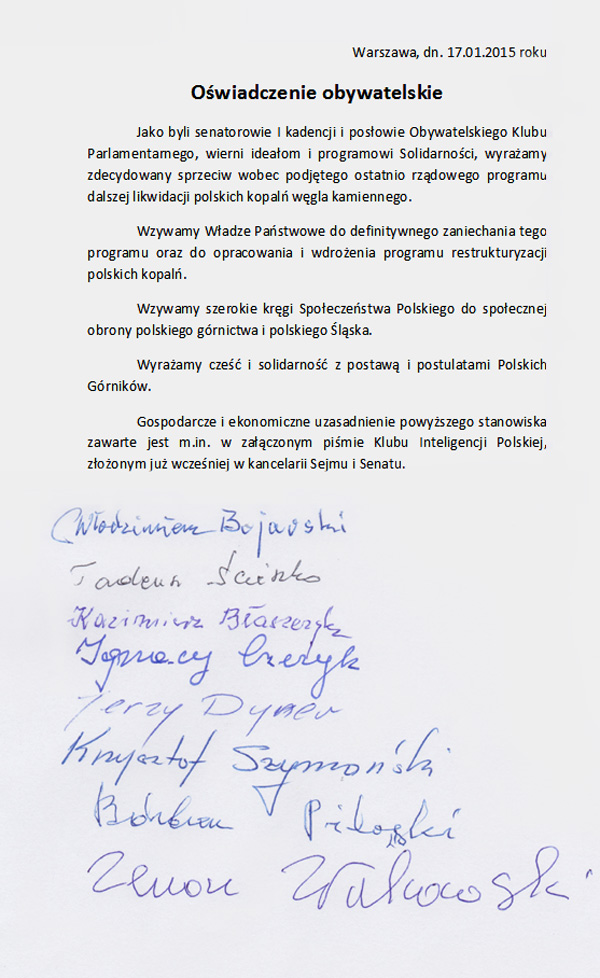 Warszawa, dn. 17.01.2015 roku
Oświadczenie obywatelskie
Jako byli senatorowie I kadencji i posłowie Obywatelskiego Klubu
Parlamentarnego, wierni ideałom i programowi Solidarności, wyrażamy
zdecydowany sprzeciw wobec podjętego ostatnio rządowego programu
dalszej likwidacji polskich kopalń węgla kamiennego.
Wzywamy Władze Państwowe do definitywnego zaniechania tego
programu oraz do opracowania i wdrożenia programu restrukturyzacji
polskich kopalń.
Wzywamy szerokie kręgi Społeczeństwa Polskiego do społecznej
obrony polskiego górnictwa i polskiego Śląska.
Wyrażamy cześć i solidarność z postawą i postulatami Polskich
Górników.
Gospodarcze i ekonomiczne uzasadnienie powyższego stanowiska
zawarte jest m.in. w załączonym piśmie Klubu Inteligencji Polskiej,
złożonym już wcześniej w kancelarii Sejmu i Senatu.
Włodzimierz Bojarski
Tadeusz
Kazimierz Błaszczyk
Ignacy Czeżyk
Jerzy Dyner
Krzysztof Szymański
Zenon